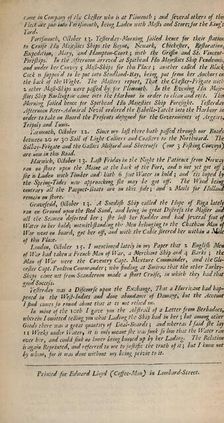 came in Company of the Chester who is at Plimouth; and several others of the
Fleet are put into Portsmouth, being Laden with Masts and Stores for the King's
Yard.
Portsmouth, October 13. Yesterday-Morning, sailed hence for their Station
to Cruise His Majesties Ships the Rupert, Newark, Chichester, Restoration,
Expedition, Mary, and Hampton-Court; with the Griffin and St. Vincent
Fireships. In the Afternoon arrived at Spithead His Majesties Ship Pendennis,
and under her Convoy
Cock is supposed to be put into Sandland-Bay, being put from her Anchors on
the back of the Wight. The Masters report, That the Chester-Frigate with
2 other Mast-Ships were passed by for Plimouth. In the Evening His Maje-
sties Ship Burlington came into the Harbour in order to clean and refit. This
Morning sailed from Spithead His Majesties Ship Fireship. Yesterday
Afternoon Rere-Admiral Nevil ordered the Isabella-Yacht into the Harbour in
order to take on Board the Presents designed for the Governments of Argiers,
Tripoli and Tunis.
Yarmouth, October 12. Since my last there hath passed through our Roads
between 20 or 30 Sail of Light Colliers and Coasters to the Northward. The
Sallay-Frigate and the Gallies Mostard and Sheerness (our 3 Fishing Convoys)
are now in this Road.
Harwich, October 13. Last Friday in the Night the Patience from Norway
ran on shore upon the Stone at the back of the Fort, and is not yet got off;
she is Laden with Timber and hath 6 foot Water in hold; and tis hoped by
the Spring-Tydes now approaching she may be got off. The Wind being
contrary all the Pacquet-Boats are in this side; and 2 Mails for Holland
remain on shore.
Gravesend, October 13. A Swedish Ship called the Hope of Riga lately
ran on Ground upon the Red Sand, and being in great Distress the Master and
all the Seamen deserted her; she lost her Rudder and had several foot of
Water in her hold, notwithstanding the Men belonging to the Chatham Man of
War went on board, got her off, and with the Cable steered her within a Mile
of this Place.
London, October 15. I mentioned lately in my Paper that 2 English Men
of War had taken a French Man of War, a Merchant Ship and 4 Barks; the
Men of War were the Coventry Capt. Mixture Commander, and the
Capt. Fenton Commander; who finding at Guerus that the other Turkey-
Ships came not from Scanderoon made a short Cruize, in which they had that
good Success.
Yesterday was a Discourse upon the Exchange, That a Hurricane had hap-
pened in the West-Indies and done abundance of Damage, but the Account
I find varies so much about that as is not relied on.
In mine of the 10th I gave you the Abstract of a Letter from Barbadoes,
wherein I omitted telling you what Lading the Ship had in her; but among other
Goods there was a great quantity of Deal-Boards; and whereas I said she lay
11 Weeks under Water, it is only meant she was sunk so low that the Water ran
over her, and could sink no lower being buoyed up by her Lading. The Relation
is again Reprinted, and referred to me to justifie the truth of it; but I know not
by whom, for it was done without my being privie to it.
Printed for Edward Lloyd (Coffee-Man) in Lombard-Street.